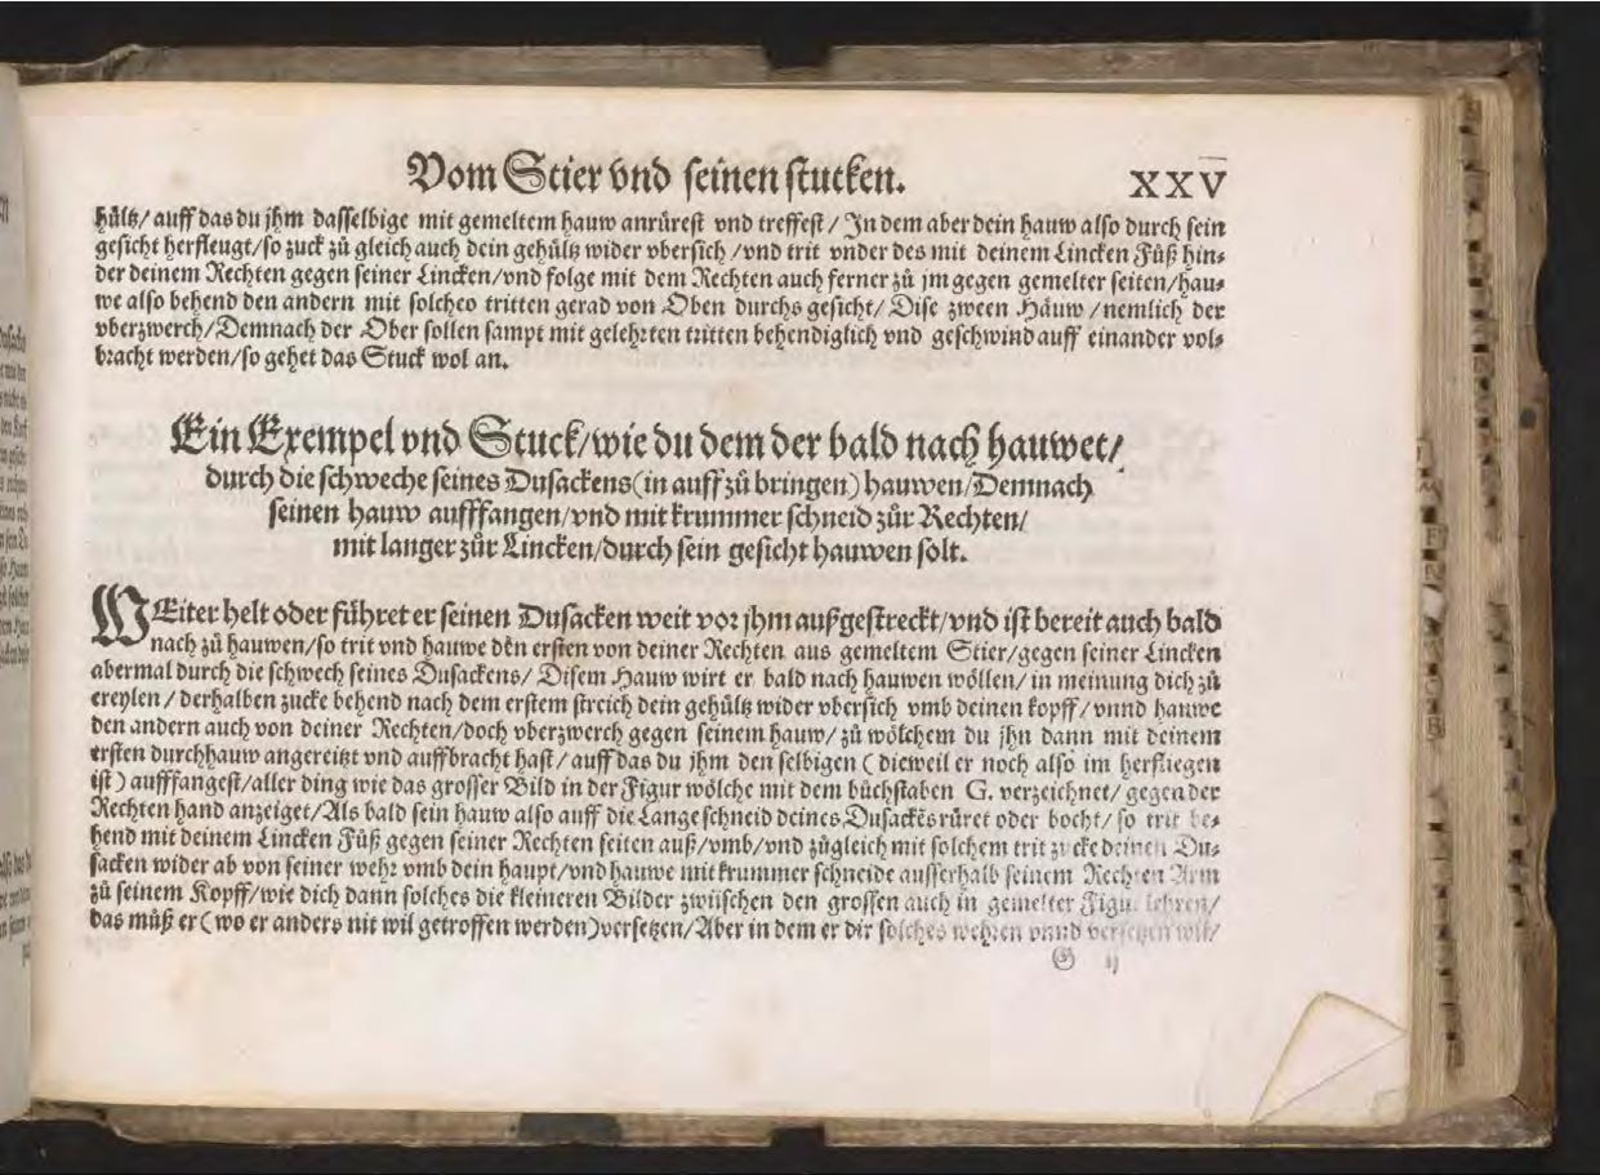 Vom Stier vnd seinen stucken.
XXV
hůltz/ auff das du jhm dasselbige mit gemeltem hauw anrůrest vnd treffest/ In dem aber dein hauw also durch sein
gesicht herfleugt/so zuck zů gleich auch dein gehůltz wider vbersich/vnd trit vnder des mit deinem Lincken Fůß hin-
der deinem Rechten gegen seiner Lincken/vnd folge mit dem Rechten auch ferner zů jm gegen gemelter seiten/hau-
we also behend den andern mit solcheo tritten gerad von Oben durchs gesicht/ Dise zween Håuw/nemlich der
vberzwerch/Demnach der Ober sollen sampt mit gelehrten tritten behendiglich vnd geschwind auff einander vol-
bracht werden/so gehet das Stuck wol an.
Ein Exempel vnd Stuck/wie du dem der bald nach hauwet/
durch die schweche seines Dusackens(in auff zů bringen) hauwen/Demnach
seinen hauw aufffangen/vnd mit krummer schneid zůr Rechten/
mit langer zůr Lincken/durch sein gesicht hauwen solt.
WEiter helt oder fůhret er seinen Dusacken weit vor jhm außgestreckt/vnd ist bereit auch bald
nach zů hauwen/so trit vnd hauwe dēn ersten von deiner Rechten aus gemeltem Stier/gegen seiner Lincken
abermal durch die schwech seines Dusackens/ Disem Hauw wirt er bald nach hauwen wöllen/ in meinung dich zů
ereylen/ derhalben zucke behend nach dem erstem streich dein gehůltz wider vbersich vmb deinen kopff/vnnd hauwe
den andern auch von deiner Rechten/doch vberzwerch gegen seinem hauw/ zů wölchem du jhn dann mit deinem
ersten durchhauw angereitzt vnd auffbracht hast/ auff das du jhm den selbigen ( dieweil er noch also im herfliegen
ist) aufffangest/aller ding wie das grosser Bild in der Figur wölche mit dem bůchstaben G. verzeichnet/ gegen der
Rechten hand anzeiget/Als bald sein hauw also auff die Lange schneid deines Dusackēs růret oder bocht/ so trit be-
hend mit deinem Lincken Fůß gegen seiner Rechten seiten auß/vmb/vnd zůgleich mit solchem trit zucke deinen Du-
sacken wider ab von seiner wehr vmb dein haupt/vnd hauwe mit krummer schneide ausserhalb seinem Rechten Arm
zů seinem Kopff/wie dich dann solches die kleineren Bilder zwischen den grossen auch in gemelter Figu. lehren/
das můß er( wo er anders nit wil getroffen werden)versetzen/Aber in dem er dir solches wehren vnnd versetzen wil/
G ij